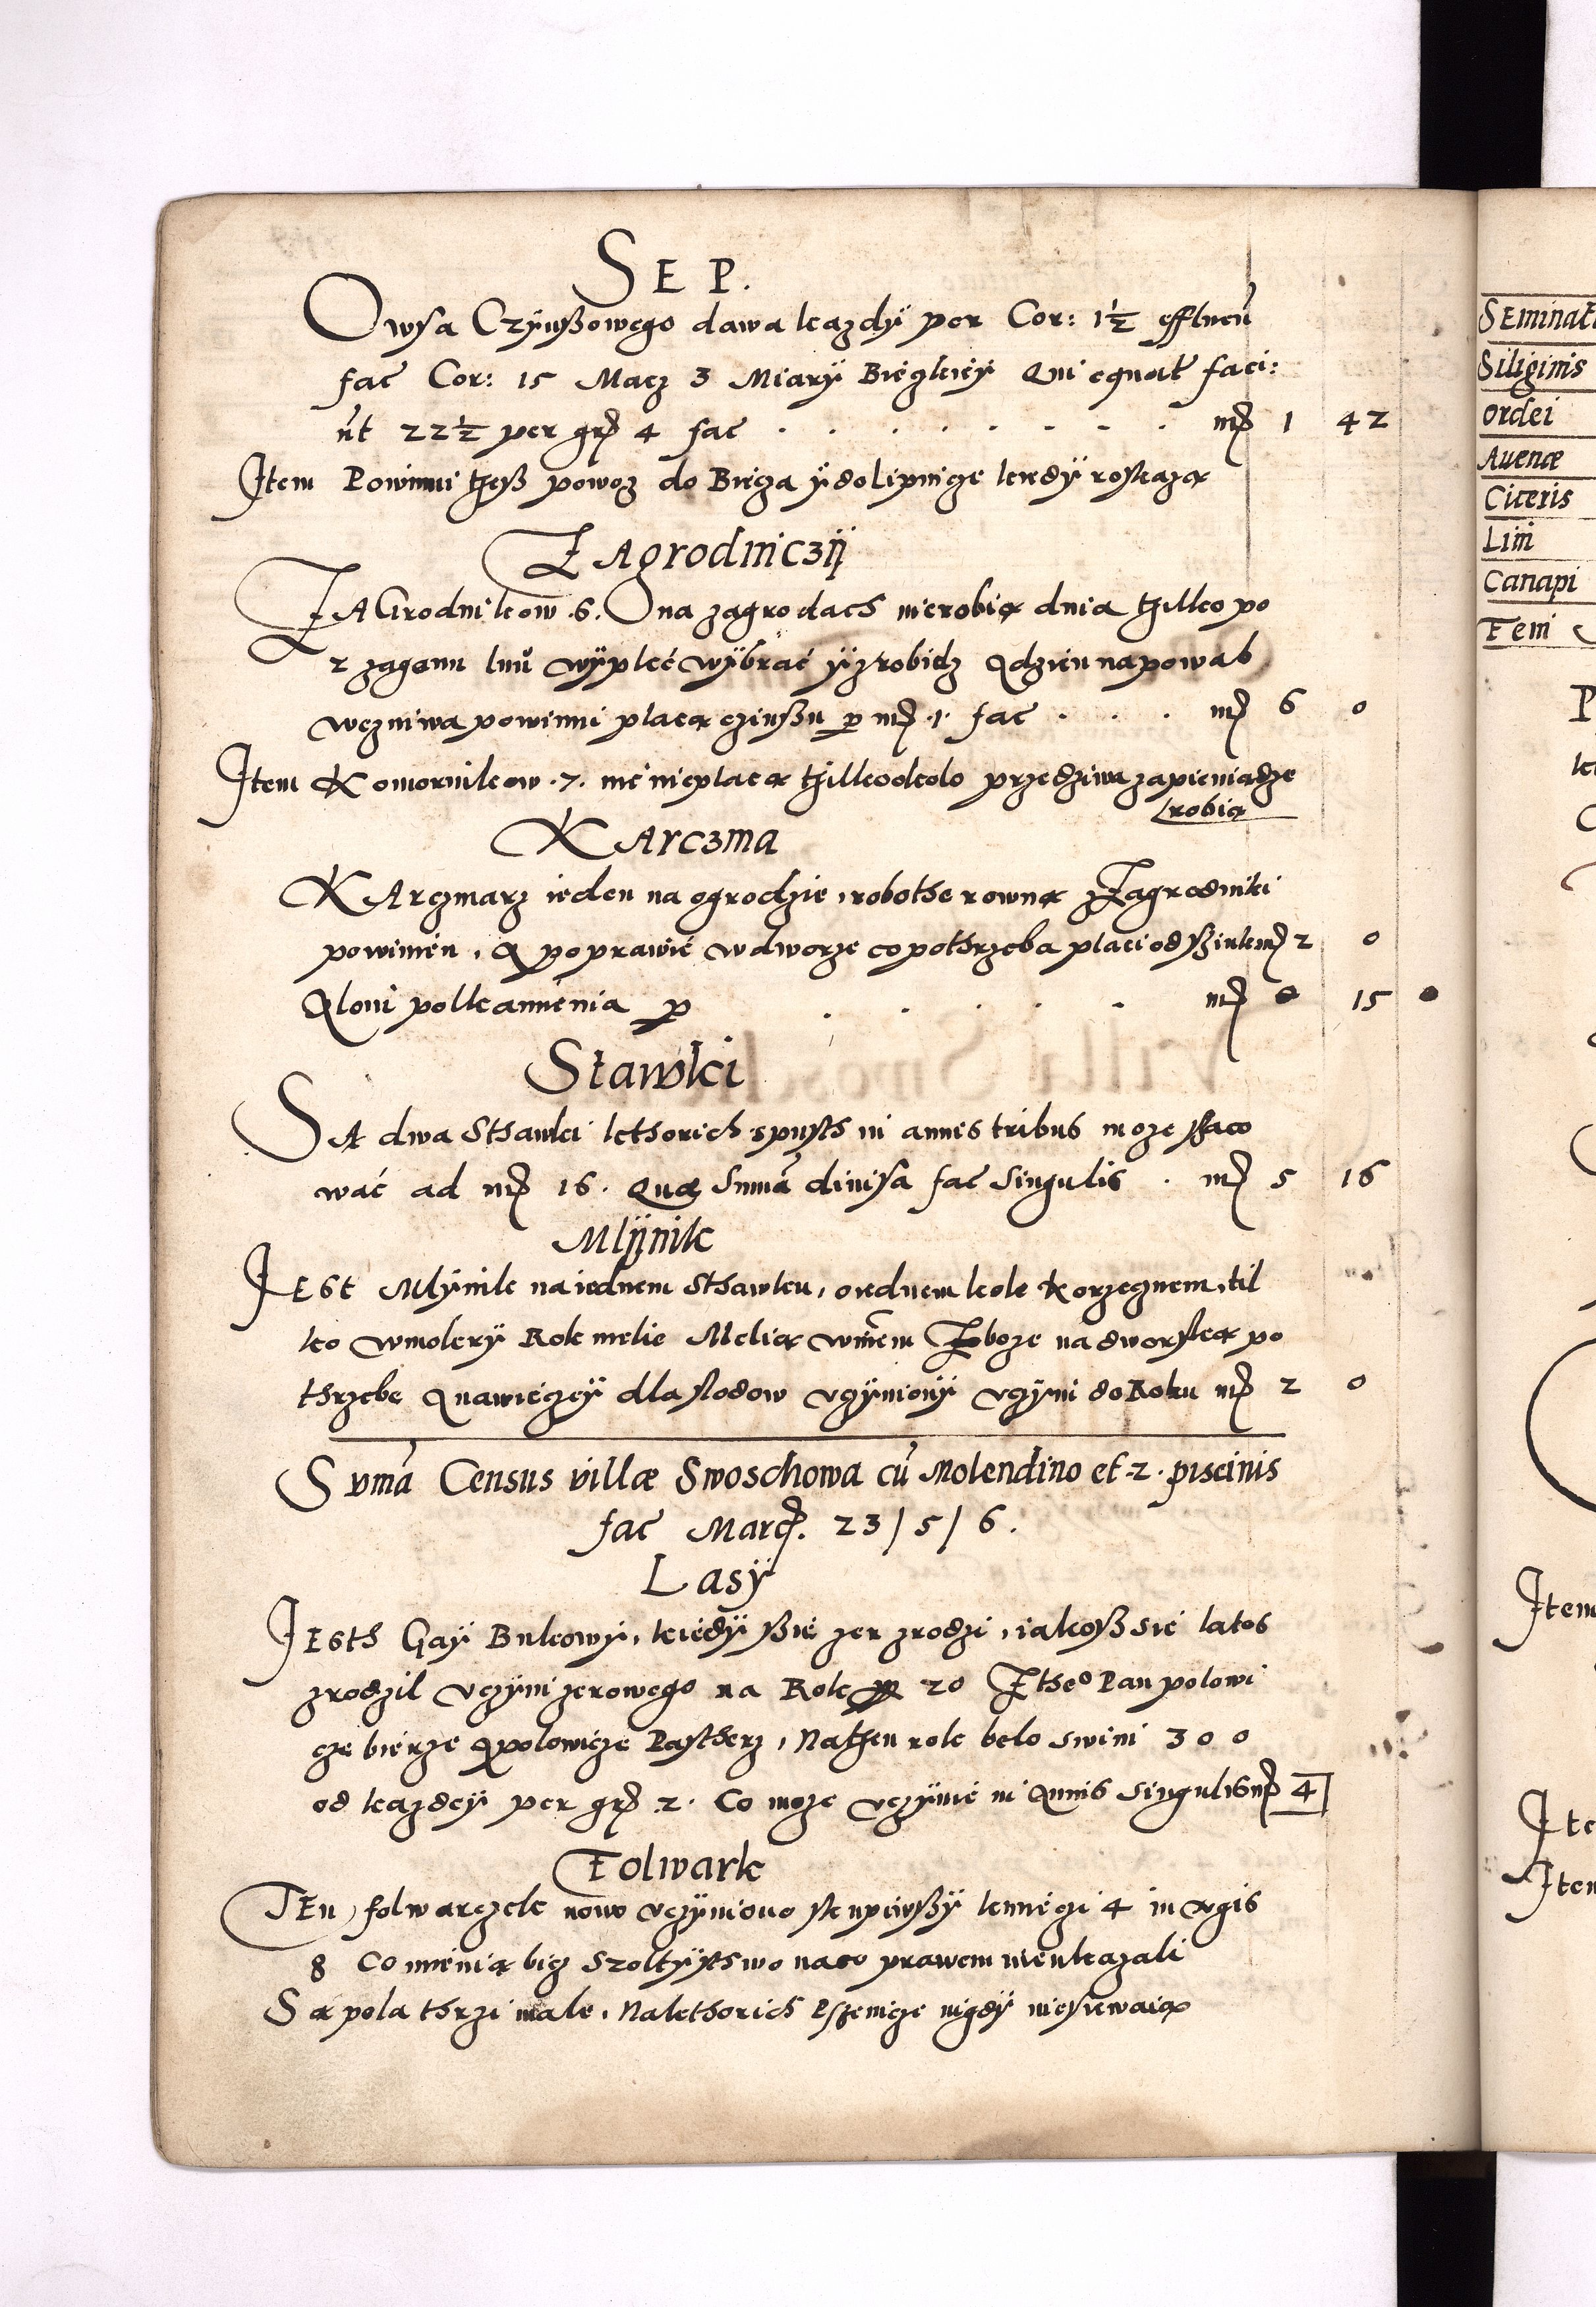 SEP.
Owsa Czÿnßowego dawa kazdÿ per Cor: 1½ effluen̄
fac̄ Cor: 15 Macz 3 Miarÿ Bieczkieÿ Qui equat̄ faci:
n̄t 22½ per gr 4 fac̄ . . . . . . . . . mr 1 42
Item Powinni theß powoz do Biecza ÿ do lipnicze kiedÿ roskaza
ZAgrodniczÿ
ZAGrodnikow .6. Ona zagrodach nierobia dnia thilko po
2 zagonu lnu wÿpleć wÿbrać ÿ zrobicz A dzien na powab
w czniwa powinni placa czinßu p mr .1. fac̄ . . . mr 6 0
Item Komornikow .7. nic nieplaca thilko okolo przedziwa za pieniadze
robia
KArczma
KArczmarz ieden na ogrodzie, robothe rowna z Zagrodniki
powinien, A poprawić w dworze co pothrzeba placi od sz mr 2 0
A loni polkamienia p . . . . . mr 0 15 0
Stawki
SA dwa Sthawki kthorich spusth in annis tribus moze ssaco
wać ad mr 16. Quæ Sum̄a divisa fac̄ Singulis . mr 5 16
Mlÿnik
IEst Mlÿnik na iednem Sthawku, o iednem kole Korzecznem, til
ko w mokrÿ Rok miele Mielia w niem Zboze na dworska po
thrzebe A nawieczeÿ dla slodow uczÿnionÿ uczÿni do Roku mr 2 0
Sum̄a Census villæ Swoschowa cū Molendino et .2. piscinis
fac̄ Marc. 23 / 5 / 6.
Lasÿ
IEsth Gaÿ Bukowÿ, kiedÿ ßie zer zrodzi, iakoß sie latos
zrodzil uczÿni zerowego na Rok mr 20 Z theo Pan polowi
cze bierze A polowicze Pastherz, Na then rok belo swini 300
od kazdeÿ per gr .2. Co moze uczÿnić in Annis Singulis mr 4
Folwark
TEn folwarczek nowo uczÿniono skupiwßÿ kmieczi 4 in agris
8 Co mienia bicz Szoltÿstwo na co prawem nieukazali
Sa pola thrzi male, Na kthorich Pszenicze nigdÿ niesiewaia
SEminat
Siliginis
Ordei
Avenæ
Ciceris
Lini
Canapi
Feni
Item
Ite
Item